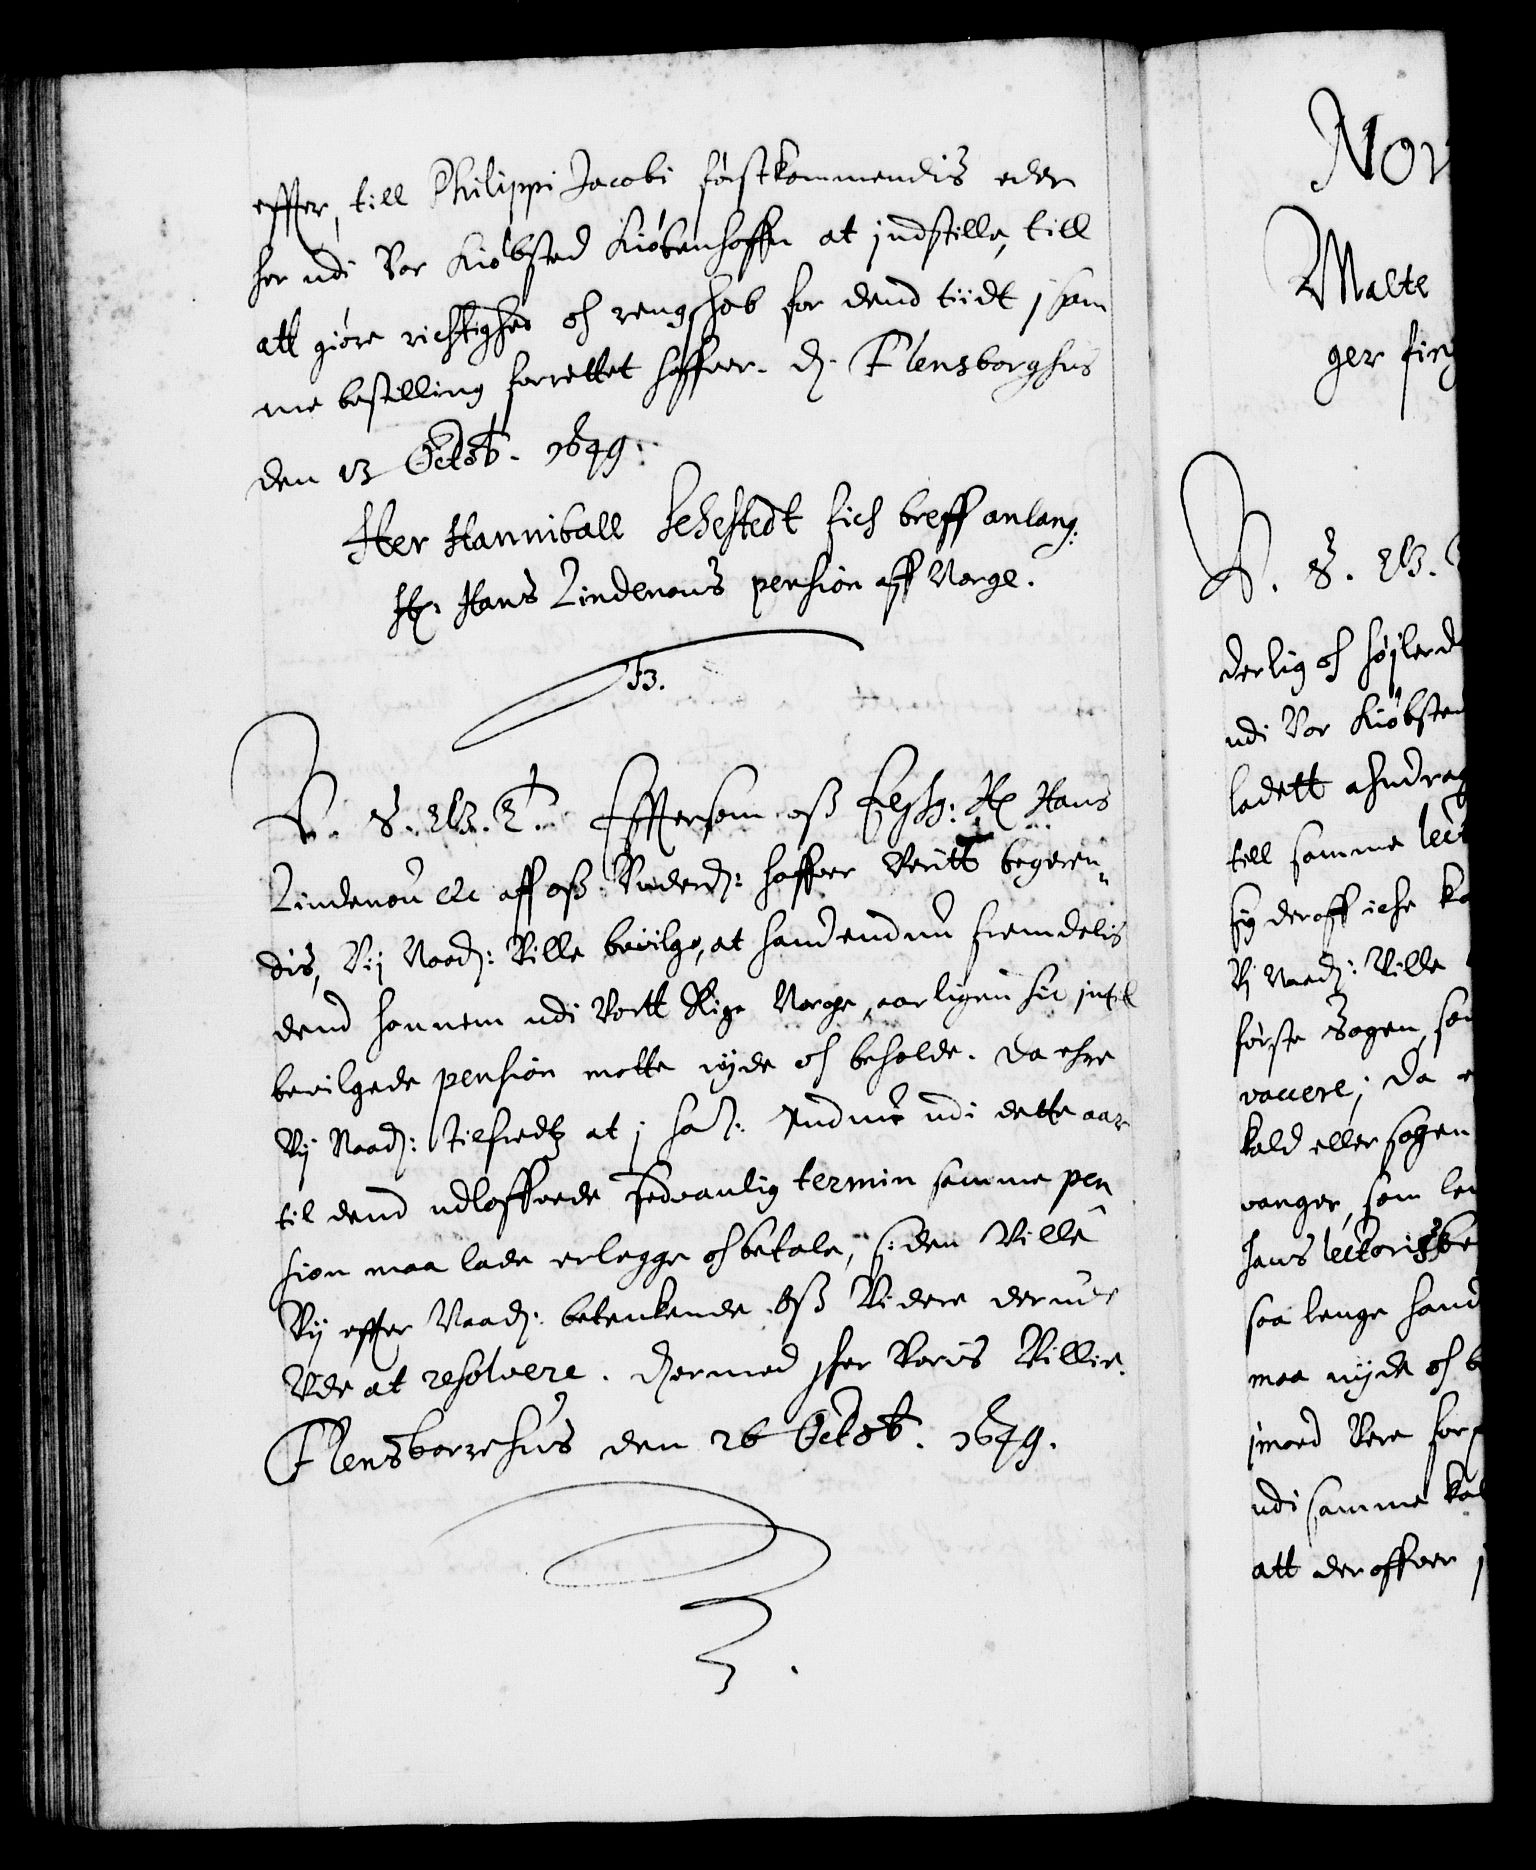 effter, till Philippi Jacobi førstkommendis eder
her udi Vor Kiøbsted Kiøbenhaffn at jndstille, till
att giøre richtighed oc rengschab for dend tiidt j sam
me bestilling forrettet haffver. dj. Flensborghus
den 13 Octob. 1649:
Her Hanniball Sehestedt fich breff anlang:
Hr: Hans Lindenous pension aff Norge.
F3.
V. S. G. T. Efftersom oß Elsch: Hr Hans
Lindenou etc aff oß Underd: haffver Veritt begeren„
dis, Vij Naad: Ville beuilge, at hand endnu fremdelis
dend hannem udi Vortt Rige Norge, aarligen hid jntil
beuilgede pension motte nyde oc beholde. Da ehre
Vij Naad: tilfredtz at j ha: endnu udi dette aar
til dend udloffvede sedvanlig termin samme pen
sion maa lade erlegge oc betale, siden Ville
Vij effter Naad: betenkende Oß Videre derudi
Vde at resolvere. dermed scher Voris Villie.
Flensborrehus den 26 Octob. 1649.
Nor
Malte
ger
V. S. G.
derlig oc højlerd
udi Vor Kiøbsted
ladett andrag
till samme lect
sig deraff iche ka
Vj Naad: Ville
første Sogen, som
vacere; Da e
kald eller sogen
vanger, som
hans lectorisbe
saa lenge hand
maa nyde oc be
jmod Vere for
udi samme kal
att deroffver j